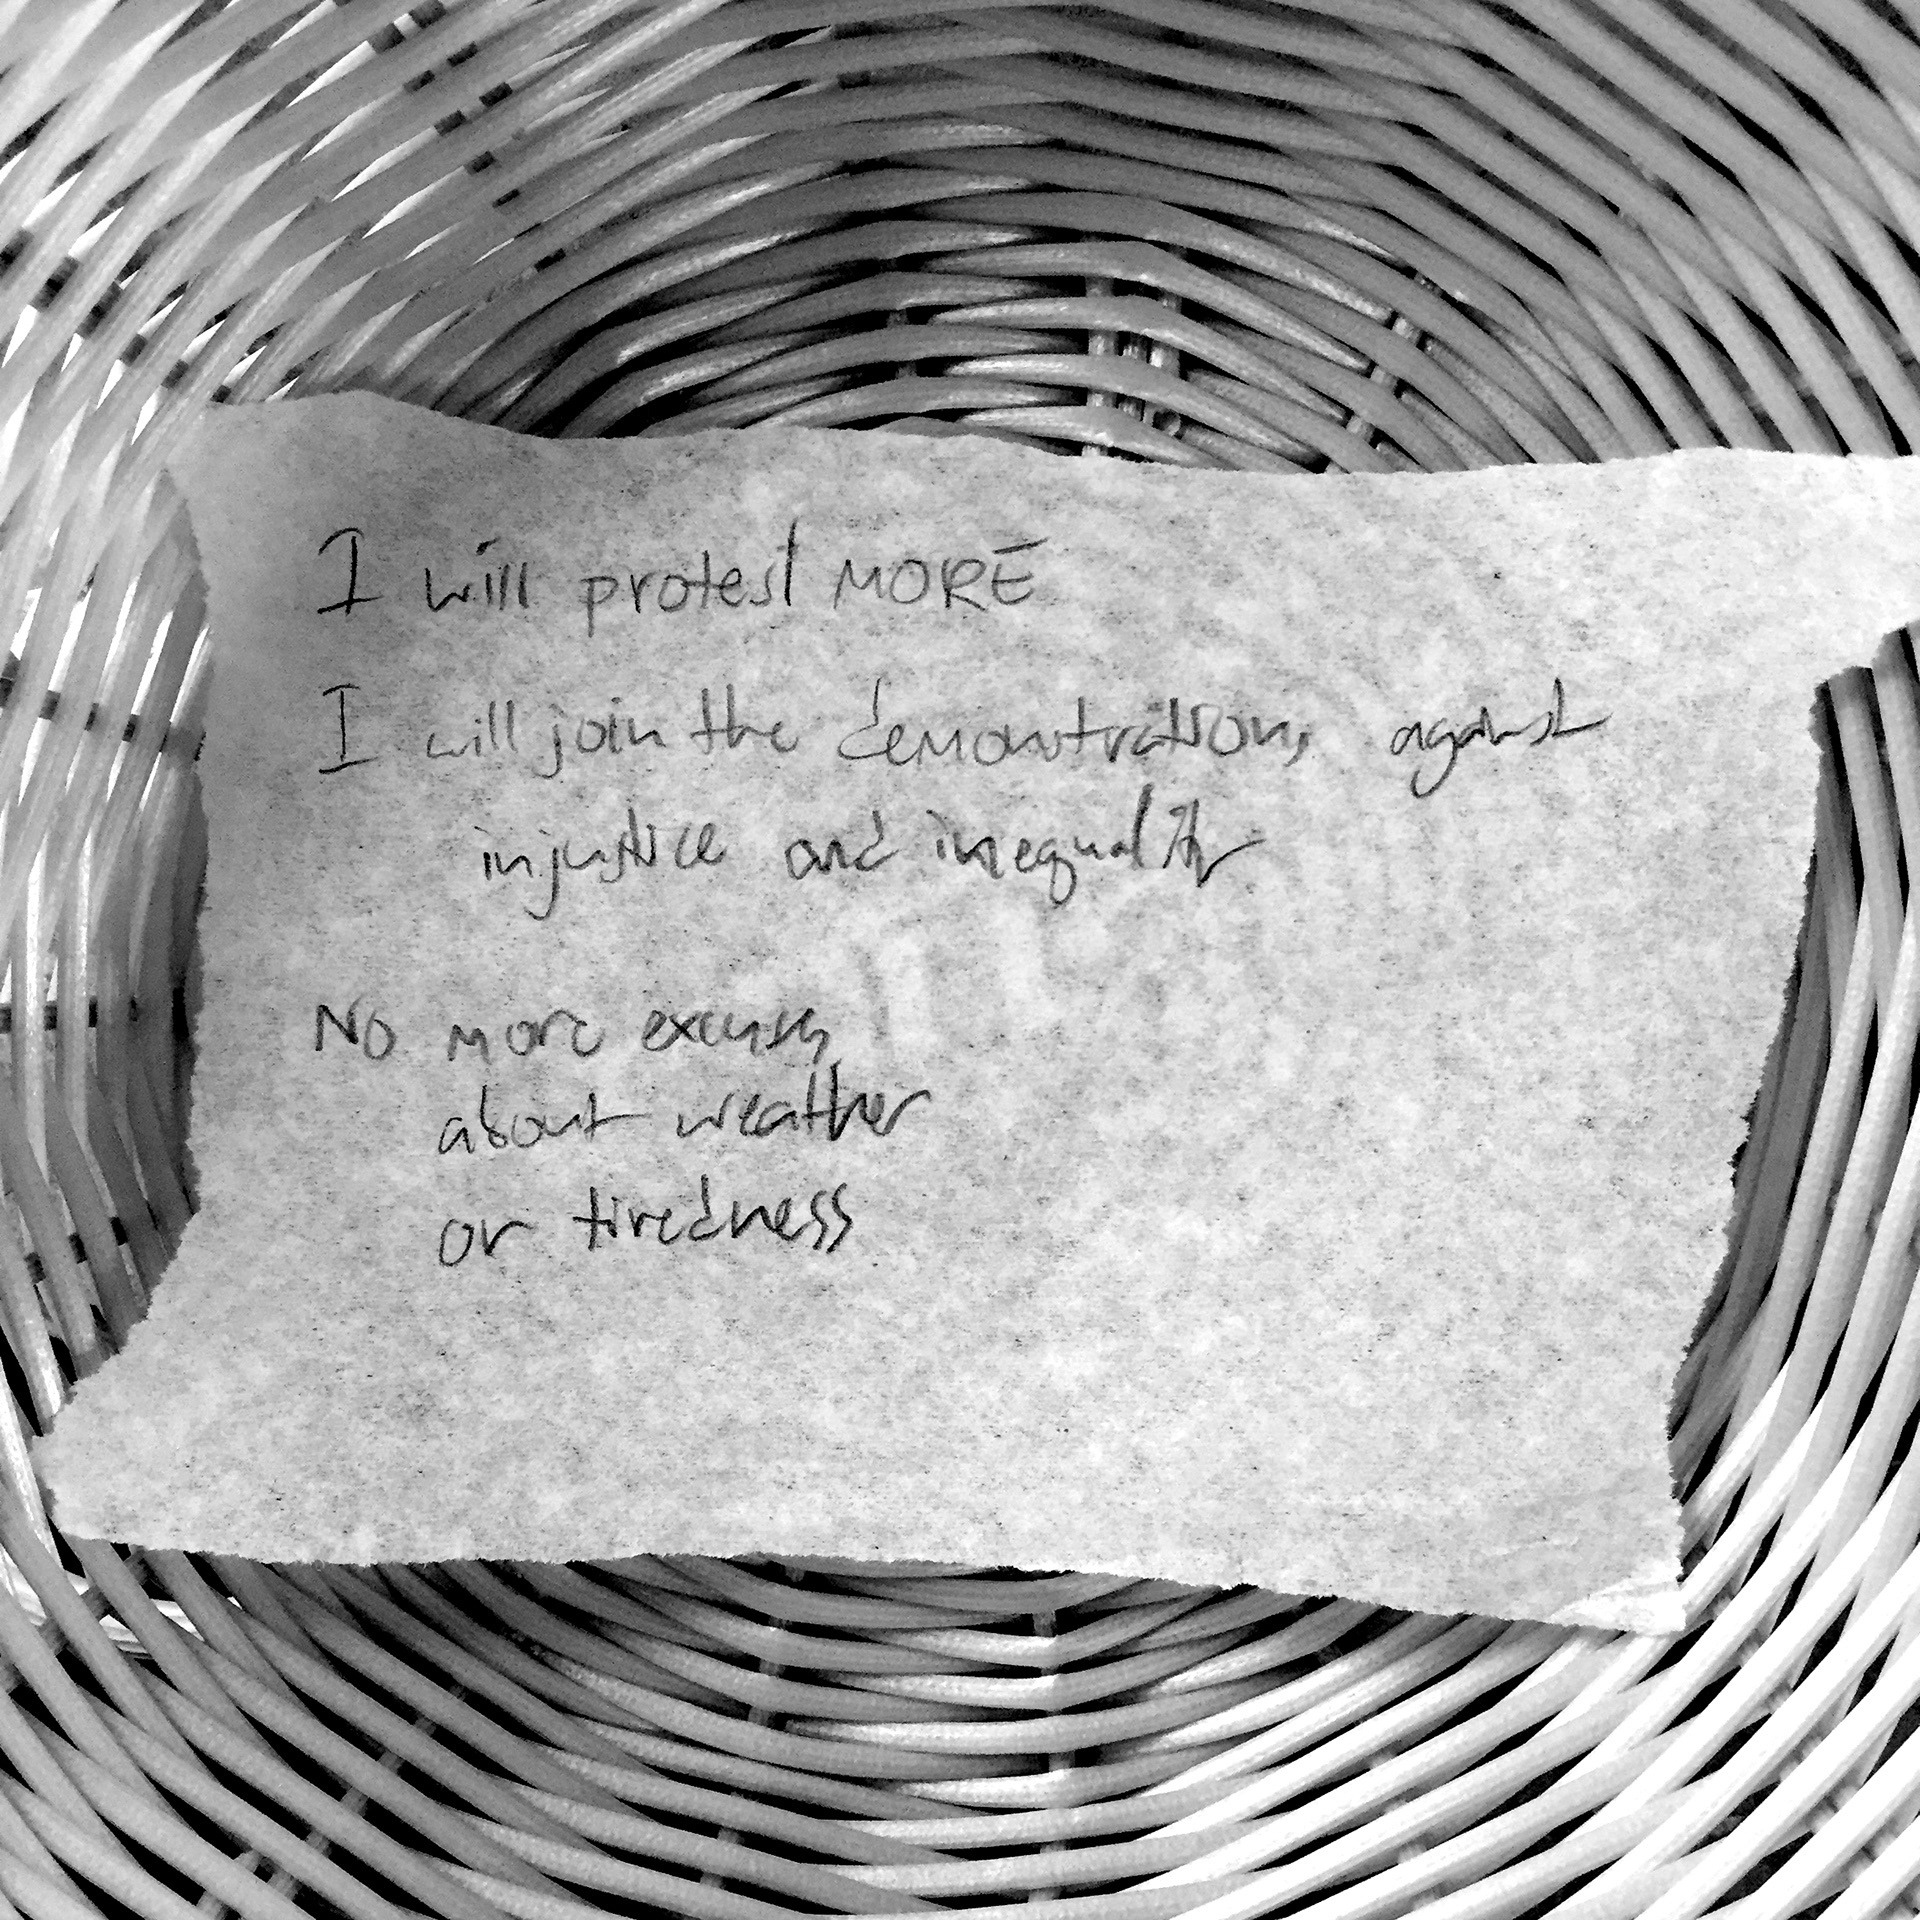 I will protest MORE
I will join the demonstrations against
injustice and inequality
No more excuses
about weather
or tiredness